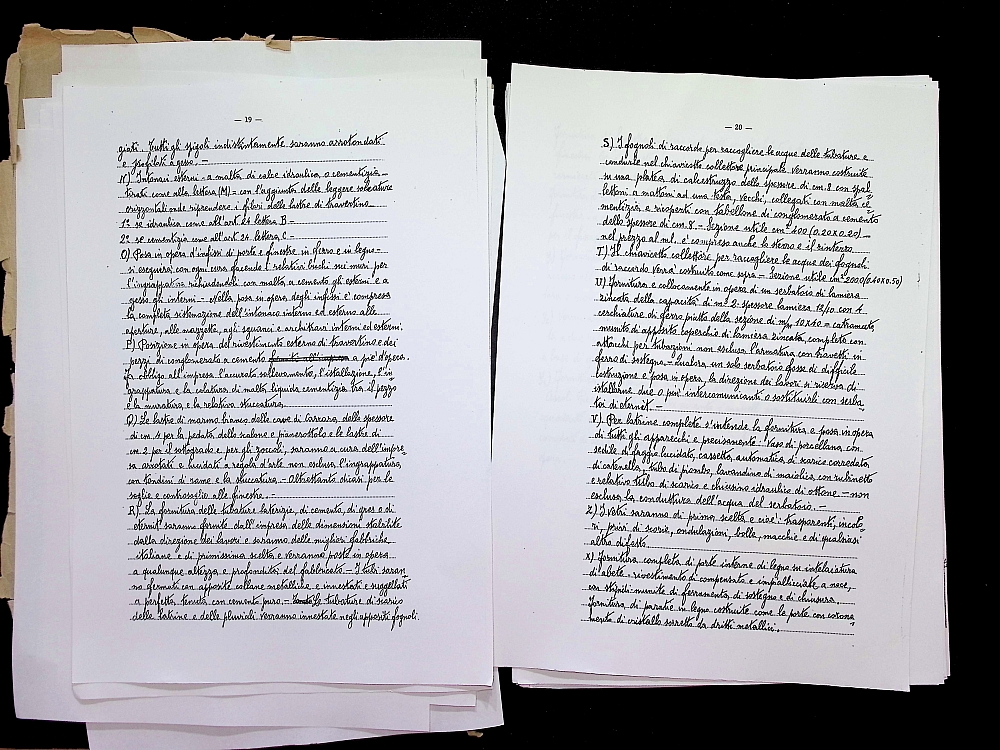 — 19 —
giati. Tutti gli spigoli indistintamente saranno arrotondati
e profilati a gesso. —
N) Intonaci esterni - a malta di calce idraulica o cementizia -
tirati come alla lettera (M) = con l'aggiunta delle leggere solcature
orizzontali onde riprendere i filari delle lastre di travertino
1° se idraulica come all'art. 24 lettera B
2° se cementizia come all'art. 24 lettera C
O) Posa in opera d'infissi di porte e finestre in ferro e in legno -
si eseguirà con ogni cura facendo i relativi buchi nei muri per
l'ingrappatura richiudendoli con malta a cemento gli esterni e a
gesso gli interni - Nella posa in opera degli infissi è compresa
la completa sistemazione dell'intonaco interno ed esterno alle
aperture, alle mazzette, agli squanci e architravi interni ed esterni.
P) Posizione in opera del rivestimento esterno di travertino e dei
pezzi di conglomerato a cemento a piè d'opera.
Fa obbligo all'impresa l'accurato sollevamento, l'istallazione, l'in
grappatura e la colatura di malta liquida cementizia tra il pezzo
e la muratura e la relativa stuccatura.
Q) Le lastre di marmo bianco delle cave di Carrara, dello spessore
di cm. 4 per la pedata, dello scalone e pianerottolo e le lastre di
cm. 2 per il sottogrado e per gli zoccoli, saranno a cura dell'impre
sa arrotati e lucidati a regola d'arte non esclusa l'ingrappatura,
con tondini di rame e la stuccatura. - Altrettanto dicasi per le
soglie e controsoglie alle finestre. -
R) La fornitura delle tubature laterizie, di cemento, di gres o di
eternit saranno fornite dall'impresa delle dimensioni stabilite
dalla direzione dei lavori e saranno delle migliori fabbriche
italiane e di primissima scelta e verranno poste in opera
a qualunque altezza e profondità del fabbricato - I tubi saran
no fermati con apposite collane metalliche e innestati e suggellati
a perfetta tenuta con cemento puro. - Le tubature di scarico
delle latrine e delle pluviali verranno innestate negli appositi fognoli.
— 20 —
S) I fognoli di raccordo per raccogliere le acque delle tubature e
condurle nel chiavicotto collettore principale verranno costruiti
su una platea di calcestruzzo dello spessore di cm. 8 con spal
lettoni a mattoni ad una testa, vecchi, collegati con malta ce
mentizia e ricoperti con tabellone di conglomerato a cemento
dello spessore di cm. 8 - Sezione utile cm² 400 (0,20x0,20) -
nel prezzo al ml. è compreso anche lo sterro e il rinterro.
T) Il chiavicotto collettore per raccogliere le acque dei fognoli
di raccordo verrà costruito come sopra - Sezione utile cm² 2000 (0.40x0.50)
U) Fornitura e collocamento in opera di un serbatoio di lamiera
zincata della capacità di m³ 2 - spessore lamiera 12/10 con 4
cerchiature di ferro piatto della sezione di m/m 10x40 e catramato,
munito di apposito coperchio di lamiera zincata, completo con
attacchi per tubazioni non esclusa l'armatura con travetti in
ferro di sostegno - Qualora un solo serbatoio fosse di difficile
costruzione e posa in opera, la direzione dei lavori si riserva di
istallarne due o più intercomunicanti o sostituirli con serba
toi di eternit. -
V) Per latrine complete s'intende la fornitura e posa in opera
di tutti gli apparecchi e precisamente - Vaso di porcellana, con
sedile di faggio lucidato, cassetta automatica di scarico corredata
di catenella, tubo di piombo, lavandino di maiolica con rubinetto
e relativo tubo di scarico e chiusino idraulico di ottone. - non
esclusa la conduttura dell'acqua dal serbatoio. -
Z) I vetri saranno di prima scelta e cioè: trasparenti, incolo
ri, privi di scorie, ondulazioni, bolle, macchie e di qualsiasi
altro difetto.
X) Fornitura completa di porte interne di legno su intelaiatura
d'abete - rivestimento di compensato e impiallacciate a noce,
con stipidi - munite di ferramenta di sostegno e di chiusura.
Fornitura di parate in legno costruite come le porte con corona
mento di cristallo sorretto da dritti metallici.